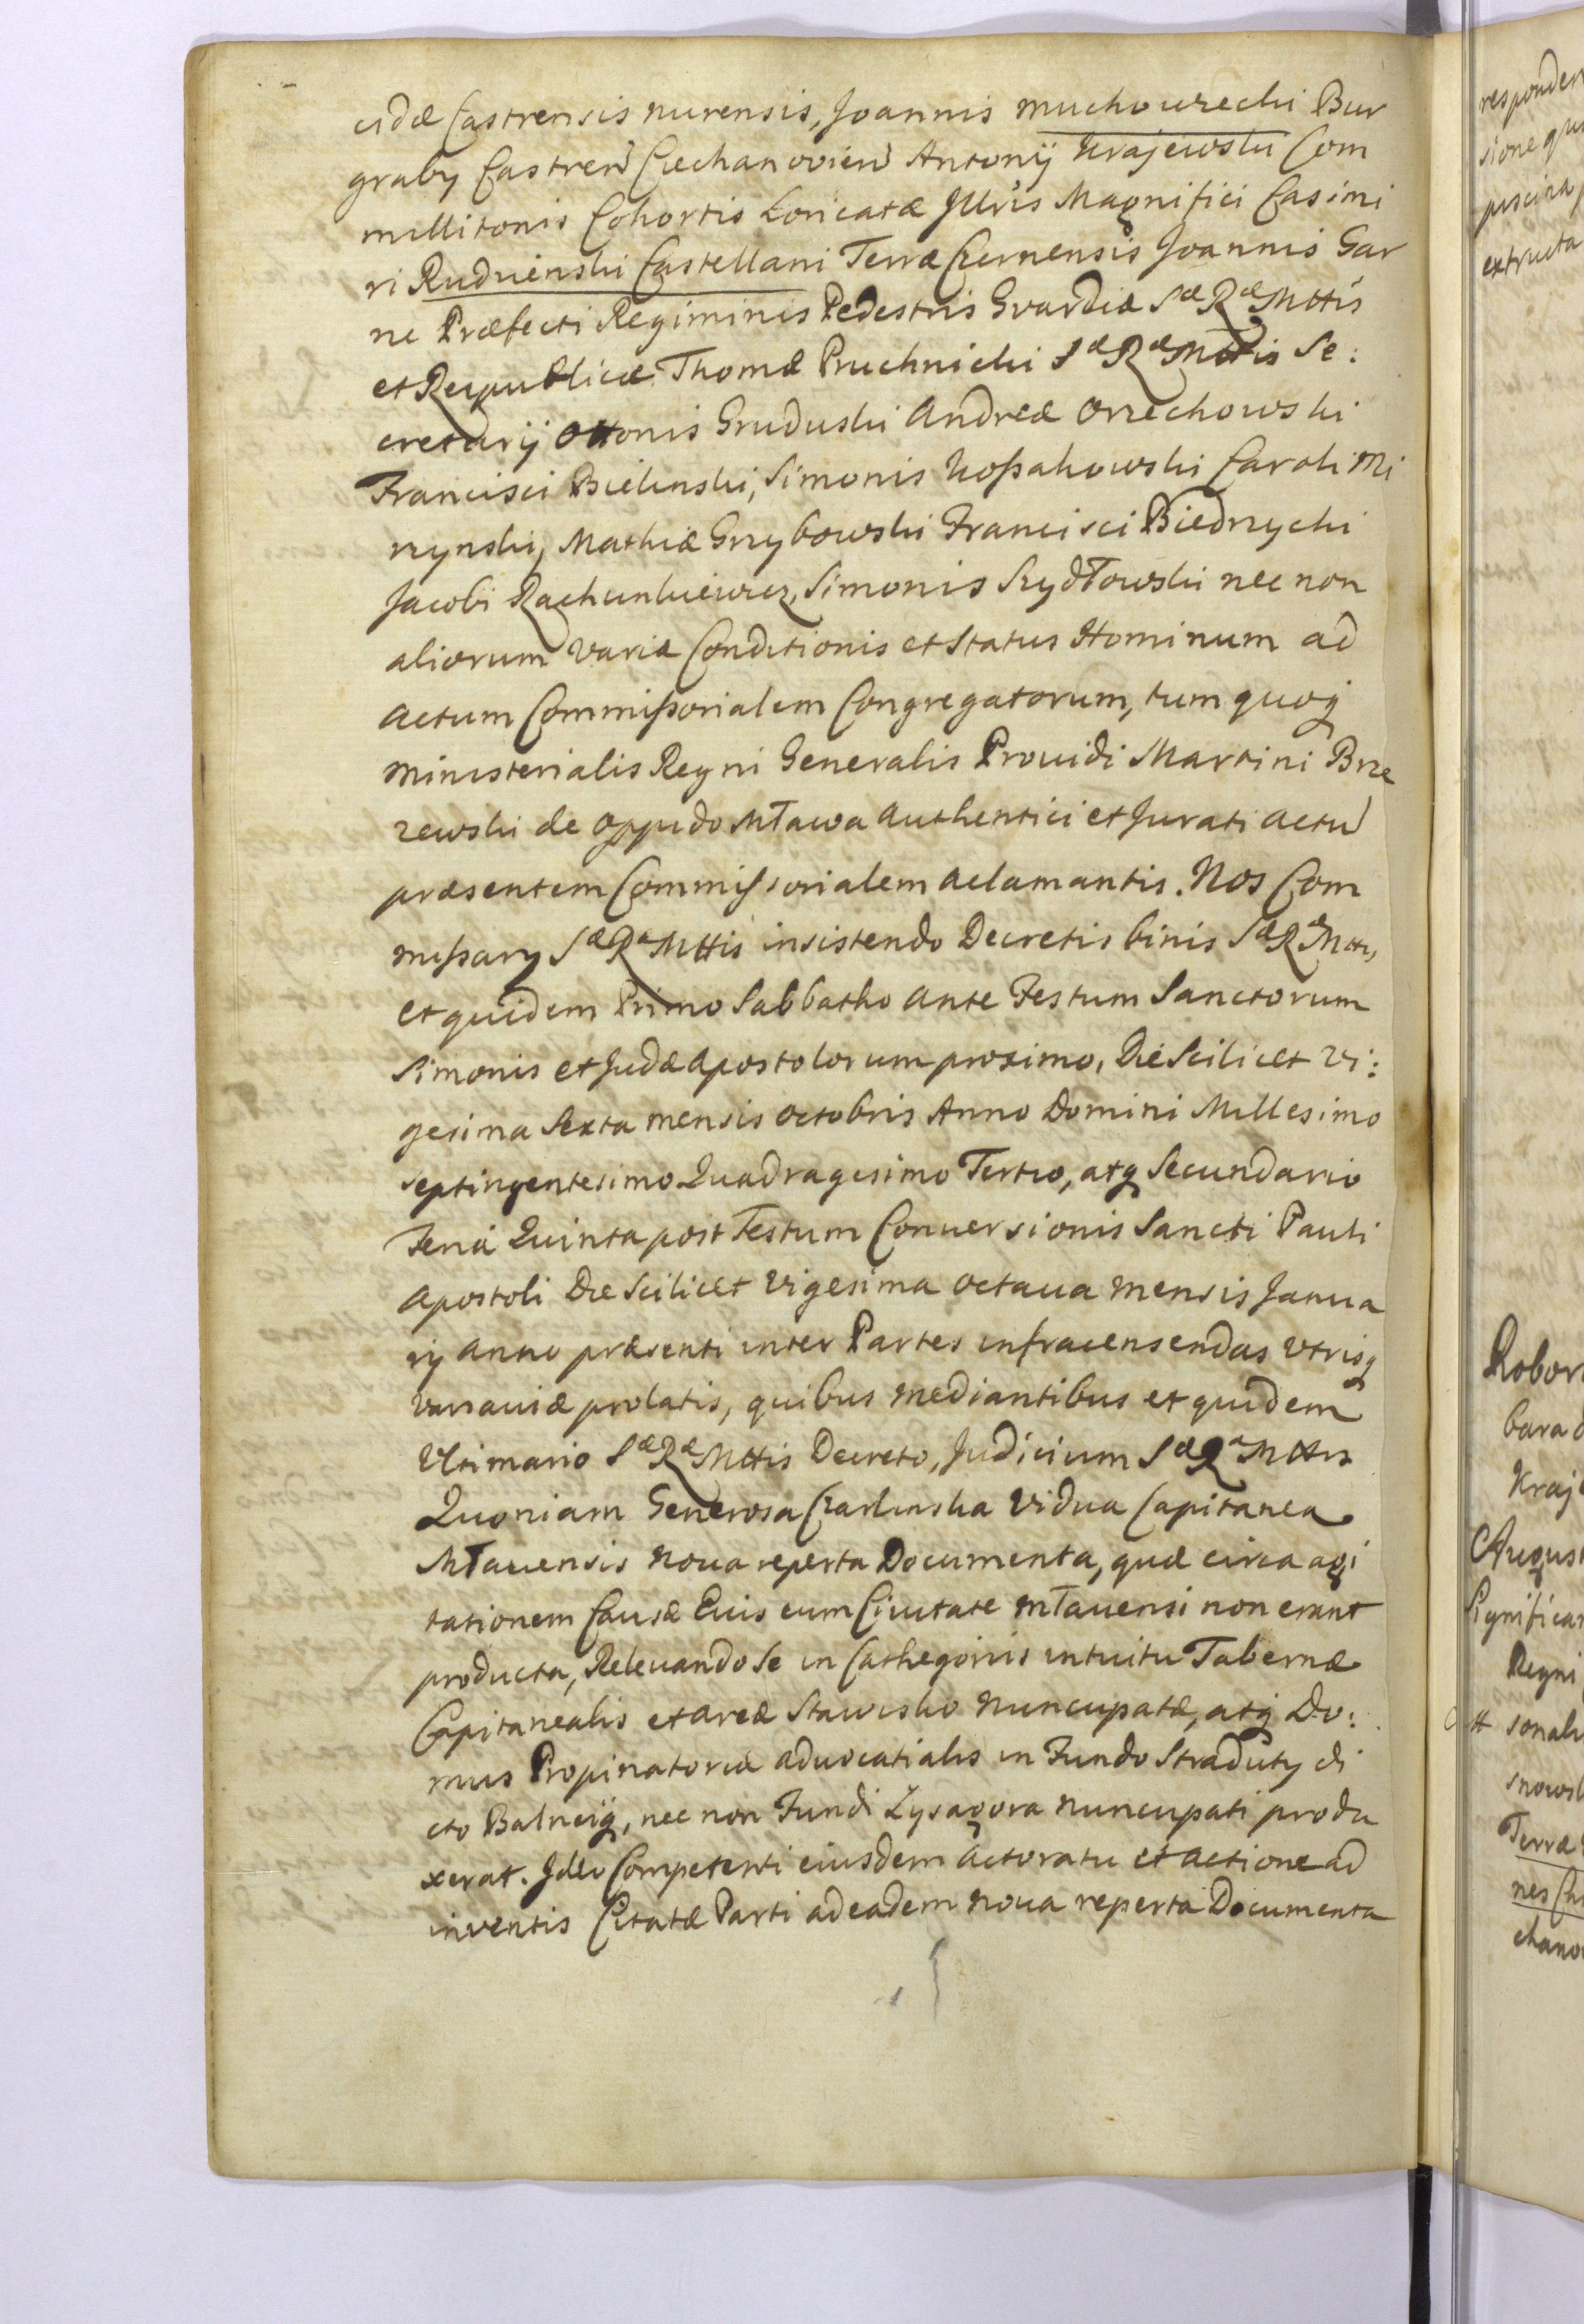 cidæ Castrensis nurensis, Joannis muchowiecki Bur
graby Castren Ciechanovien Antonij Krajewski Com
militonis Cohortis Loricatæ Jllris Magnifici Casimi
ri Rudzienski Castellani Terræ Czernensis Joannis Gar
ne Præfecti Regiminis Pedestris Gvardiæ Sæ Ræ Mttis
et Reipublicæ Thomæ Pruchnicki Sæ Ræ Mttis Se:
cretarij Ottonis Gruduski Andreæ Orzechowski
Francisci Bielinski, Simonis Kossakowski Caroli Mi
rzynski, Mathiæ Grzybowski Francisci Biedrzycki
Jacobi Rachunkiewicz, Simonis Szydłowski nec non
aliorum variæ Conditionis et Status Hominum ad
actum Commissorialem Congregatorum, tum quoq
ministerialis Regni Generalis Prouidi Martini Brze
zewski de oppido Mława authentici et Jurati actu
præsentem Commissorialem aclamantis. Nos Com
missary Sæ Ræ Mttis insistendo Decretis binis Sæ Ræ Mttis,
et quidem Primo Sabbatho ante Festum Sanctorum
Simonis et Judæ Apostolorum proximo, Die Scilicet vi:
gesima Sexta mensis octobris Anno Domini Millesimo
septingentesimo Quadragesimo Tertio, atq Secundario
Feria Quinta post Festum Conuersionis Sancti Pauli
Apostoli Die Scilicet vigesima octaua mensis Janua
rij anno præsenti inter Partes infracensendas utrisq
varsauiæ prolatis, quibus mediantibus et quidem
Vltimario Sæ Ræ Mttis Decreto, Judicium Sæ Ræ Mttis
Quoniam Generosa Czarlinska Vidua Capitanea
Mławensis noua reperta Documenta, quæ circa agi
tationem Causæ Euis cum Ciuitate Mławensi non erant
producta, Releuando Se in Cathegoriis intuitu Tabernæ
Capitanealis et areæ Stawisko nuncupatæ, atq Do:
mus Propinatoriæ aduocatialis in Fundo Straduty di
cto Balneiq, nec non Fundi Lysagora nuncupati produ
xerat. Jdeo Competenti eiusdem actoratu et actione ad
inventis Citatæ Parti ad eadem noua reperta Documenta
responder
sione
piscina
extructa
Robor
bara
Kraj
August
Significa
Regni
sonali
snowsk
Terræ
nes
chano